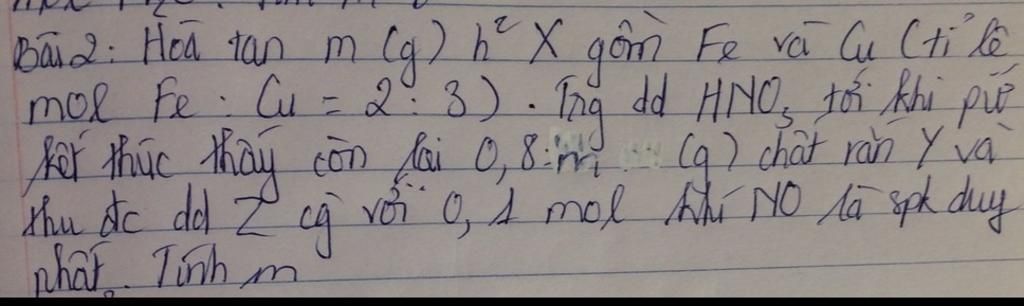 Bài 2: Hoà tan m (g) h² X gồm Fe và Cu (tỉ lệ
mol Fe : Cu = 2 : 3). Trg dd HNO₃ tới khi pứ
kết thúc thấy còn lại 0,8 m (g) chất rắn Y và
thu đc dd Z cg với 0,1 mol khí NO là spk duy
nhất. Tính m